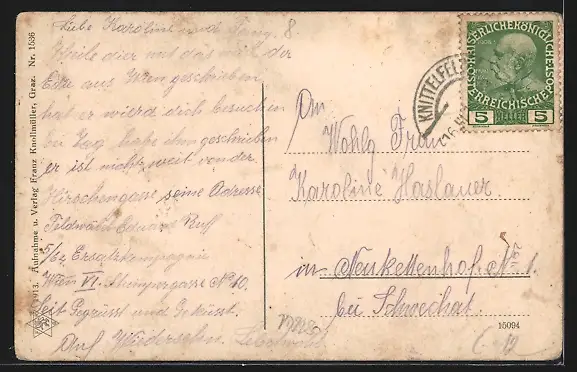 Liebe Karoline und Jung. 8.
Theile dir mit das mich der
Edu aus Wien geschrieben
hat er wierd dich besuchen
geschrieben
er ist nicht weit von der
Hirschengasse seine Adresse
Feldwäbl Eduard Ruff
5/64 Ersatzkompagnie
Wien VI. Stumpergasse No 10.
Seit Gegrüsst und Geküsst.
Auf Wiedersehn. Lebet wohl
1913. Aufnahme u. Verlag Franz Knollmüller, Graz. Nr. 1536
KNITTELFELD
KAISERLICHE KÖNIGL.
ÖSTERREICHISCHE POST
5 HELLER 5
An
Wohlg Frau
Karoline Haslauer
in Neukettenhof No 1.
bei Schwechat
15094